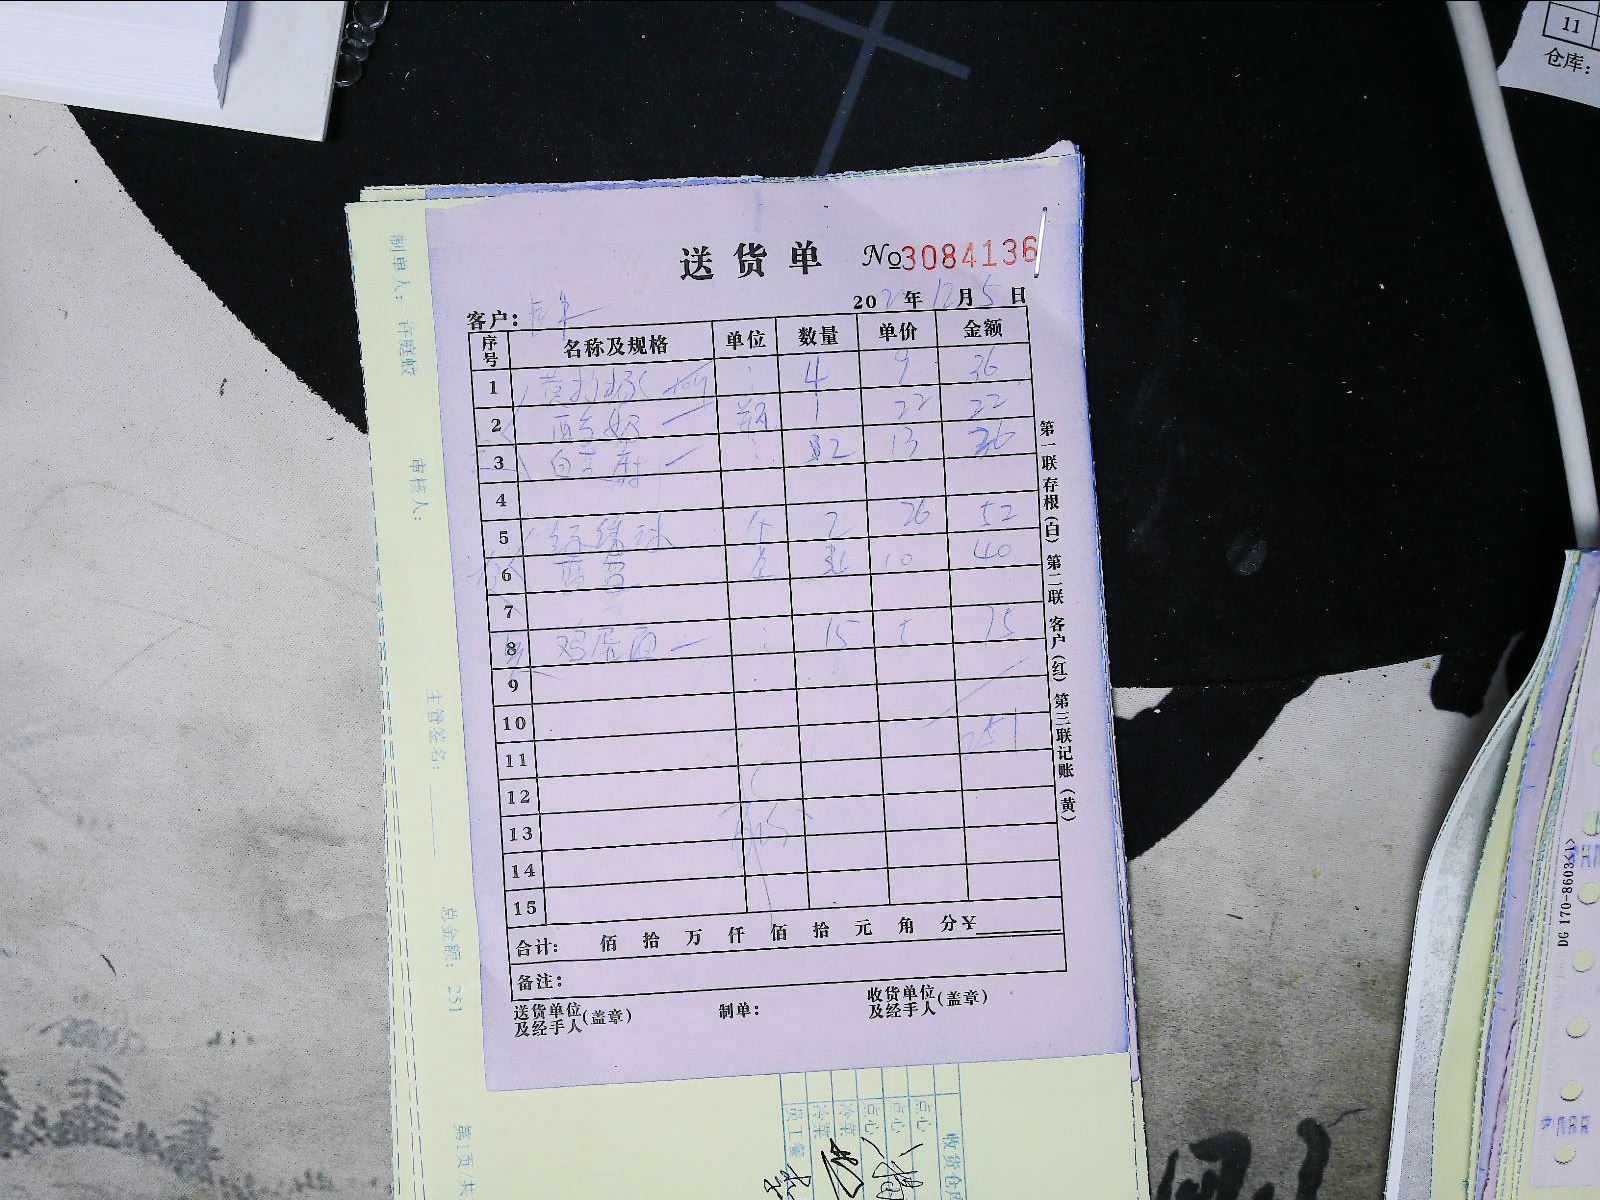 送货单 №3084136
客户：
202 年12月5日
序号 名称及规格 单位 数量 单价 金额
1 4 9 36
2 酸奶 瓶 1 22 22
3 2 13 26
4
5 个 2 26 52
6 蓝莓 10 40
7
8 鸡蛋面 15 5 75
9
10
11 251
12
13
14
15
合计： 佰 拾 万 仟 佰 拾 元 角 分￥
备注：
送货单位及经手人（盖章） 制单： 收货单位及经手人（盖章）
第一联 存根（白） 第二联 客户（红） 第三联 记账（黄）
制单人：
审核人：
主管签名：
总金额：251
第1页 共
收货仓库
点心
点心
点心
冷菜
冷菜
员工餐
11
仓库：
DG 170-8603<1>